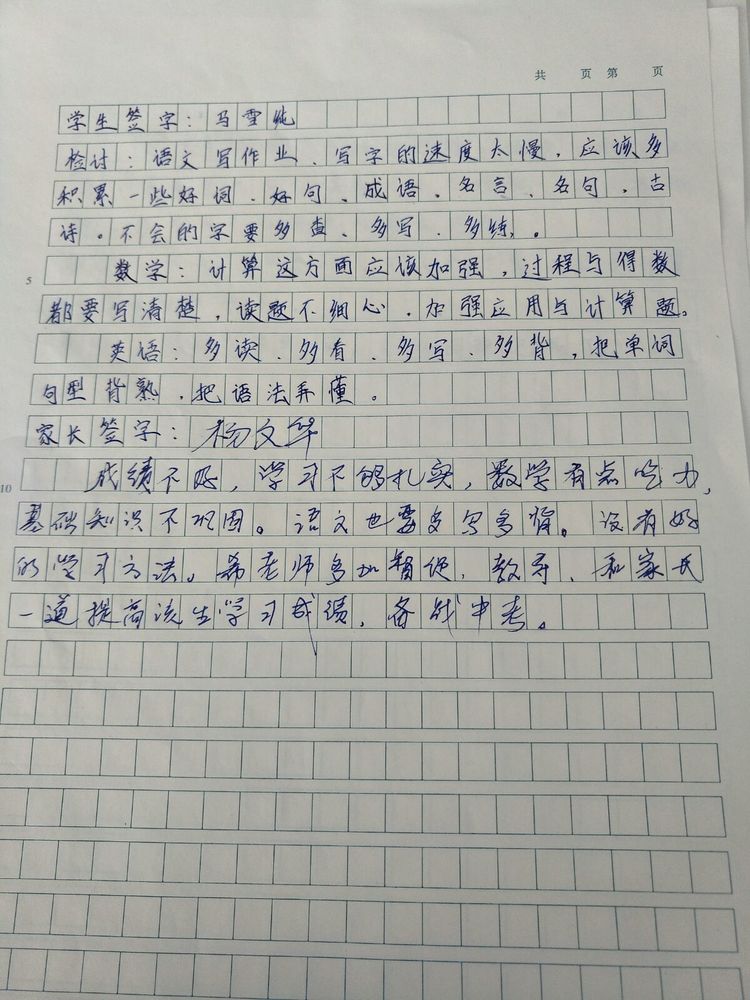 共 页 第 页
学生签字：马雪纯
检讨：语文写作业、写字的速度太慢，应该多
积累一些好词、好句、成语、名言、名句，古
诗。不会的字要多查、多写、多练。
5
数学：计算这方面应该加强，过程与得数
都要写清楚，读题不细心，加强应用与计算题。
英语：多读、多看、多写、多背，把单词
句型背熟，把语法弄懂。
家长签字：杨文华
10
成绩不好，学习不够扎实，数学有点吃力，
基础知识不巩固。语文也要多写多背。没有好
的学习方法。希老师多加督促，教导，和家长
一道提高该生学习成绩，备战中考。